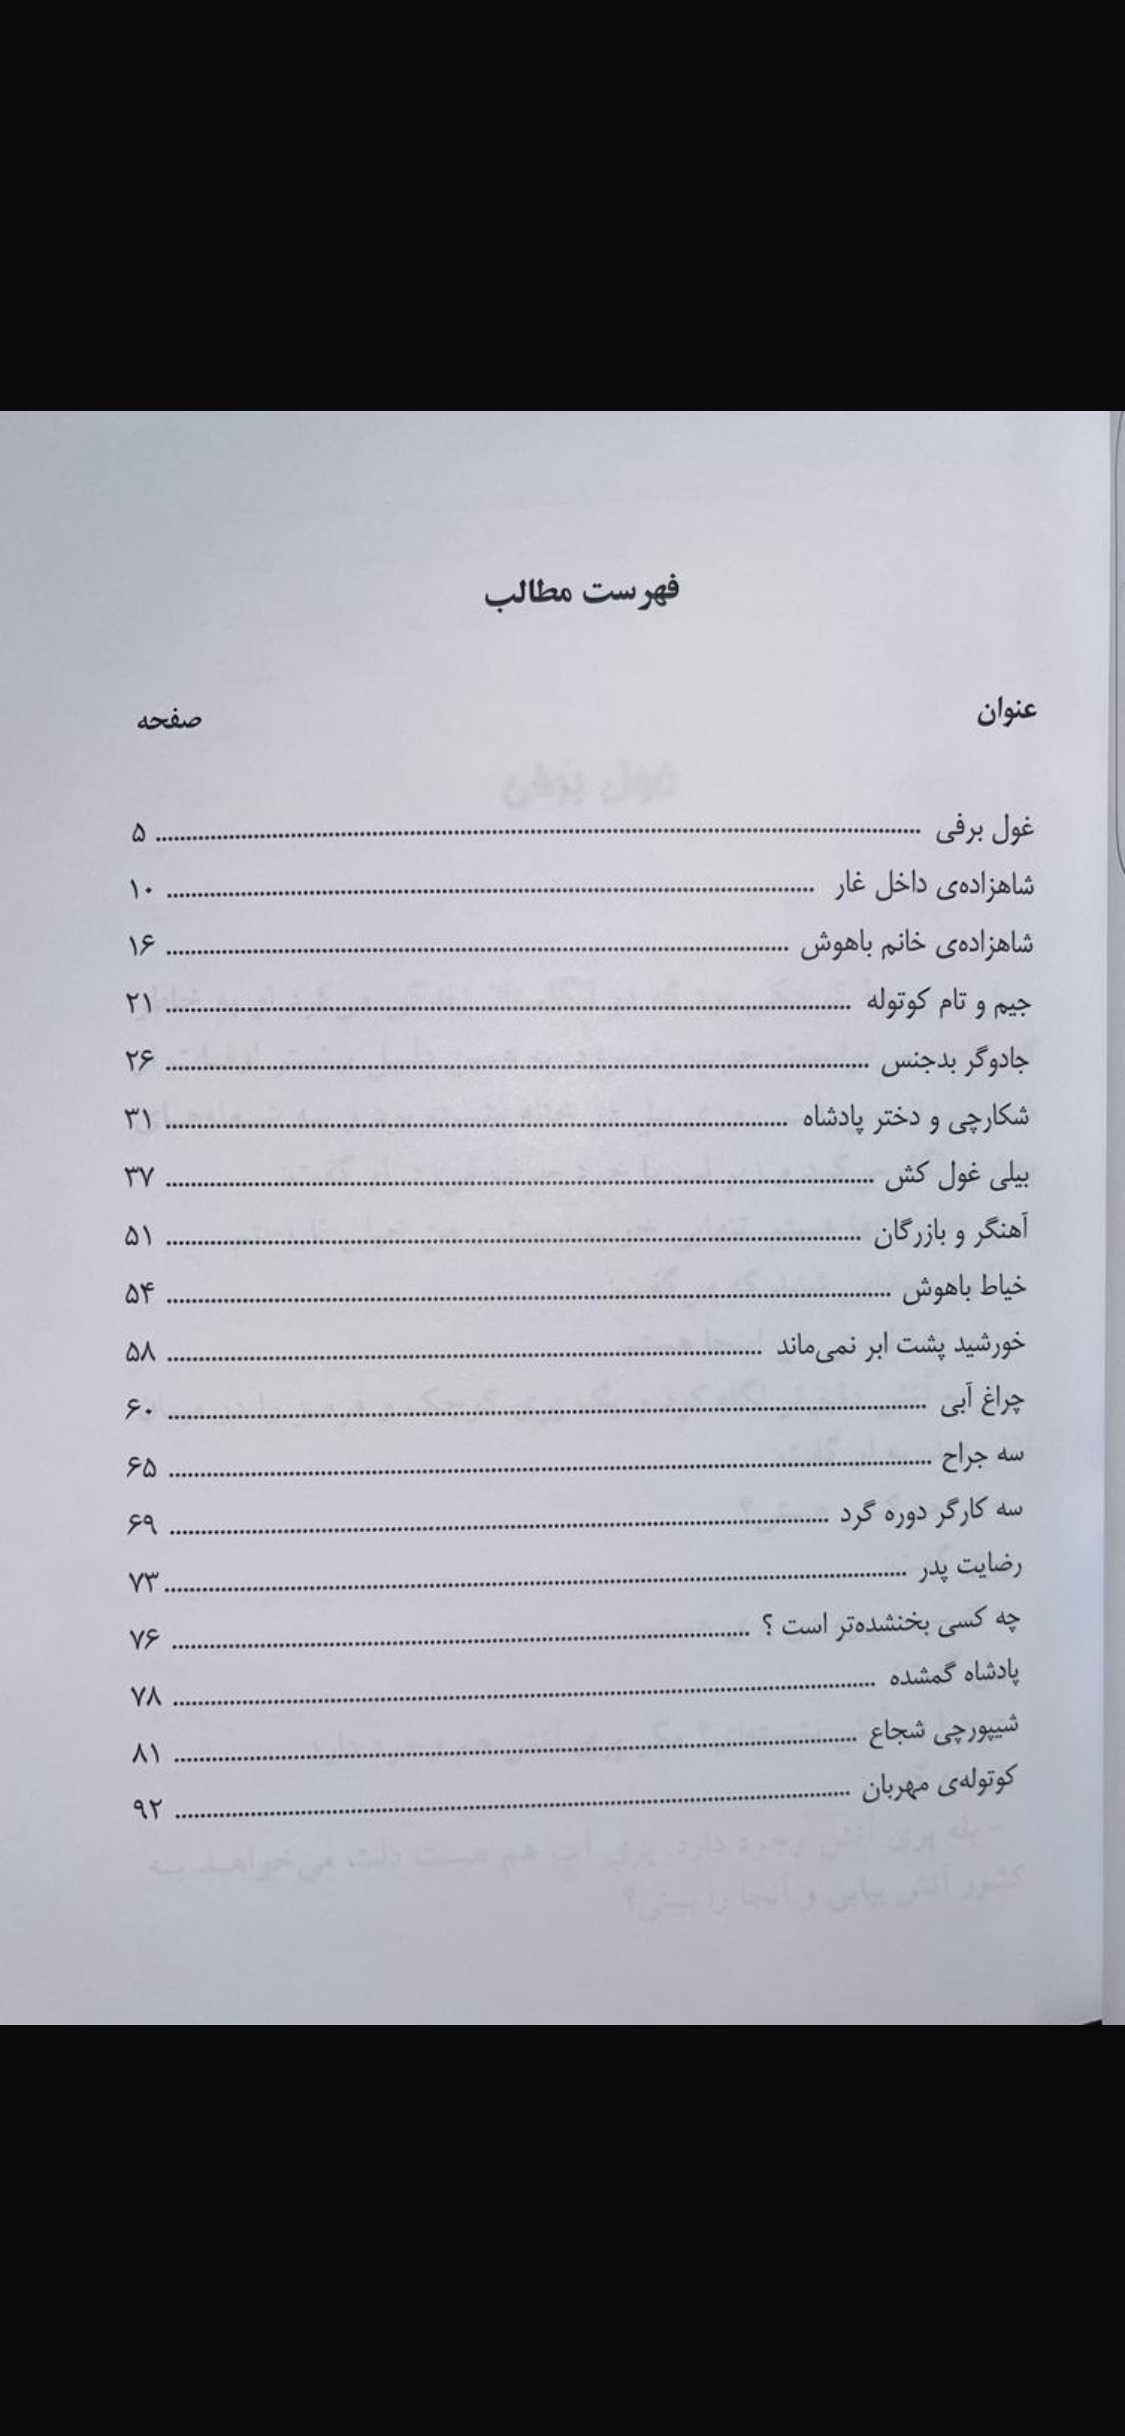 فهرست مطالب
عنوان صفحه
غول برفی ........ ۵
شاهزاده‌ی داخل غار ........ ۱۰
شاهزاده‌ی خانم باهوش ........ ۱۶
جیم و تام کوتوله ........ ۲۱
جادوگر بدجنس ........ ۲۶
شکارچی و دختر پادشاه ........ ۳۱
بیلی غول کش ........ ۳۷
آهنگر و بازرگان ........ ۵۱
خیاط باهوش ........ ۵۴
خورشید پشت ابر نمی‌ماند ........ ۵۸
چراغ آبی ........ ۶۰
سه جراح ........ ۶۵
سه کارگر دوره گرد ........ ۶۹
رضایت پدر ........ ۷۳
چه کسی بخنشده‌تر است ؟ ........ ۷۶
پادشاه گمشده ........ ۷۸
شیپورچی شجاع ........ ۸۱
کوتوله‌ی مهربان ........ ۹۲